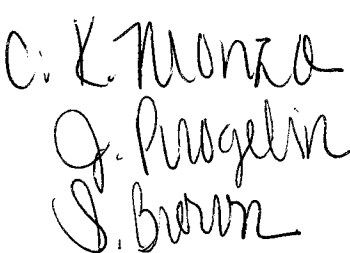 C. K. Monza
J. Pirogelin
S. Brown